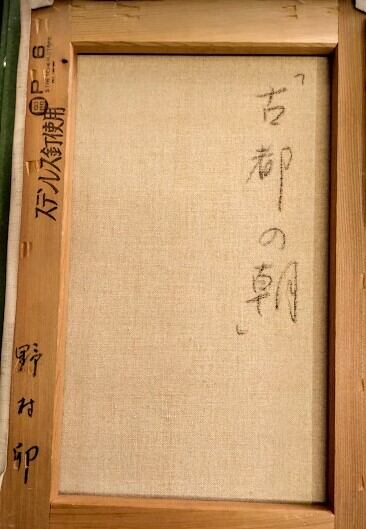 「古都の朝」
P 6
ステンレス釘使用
野村卯